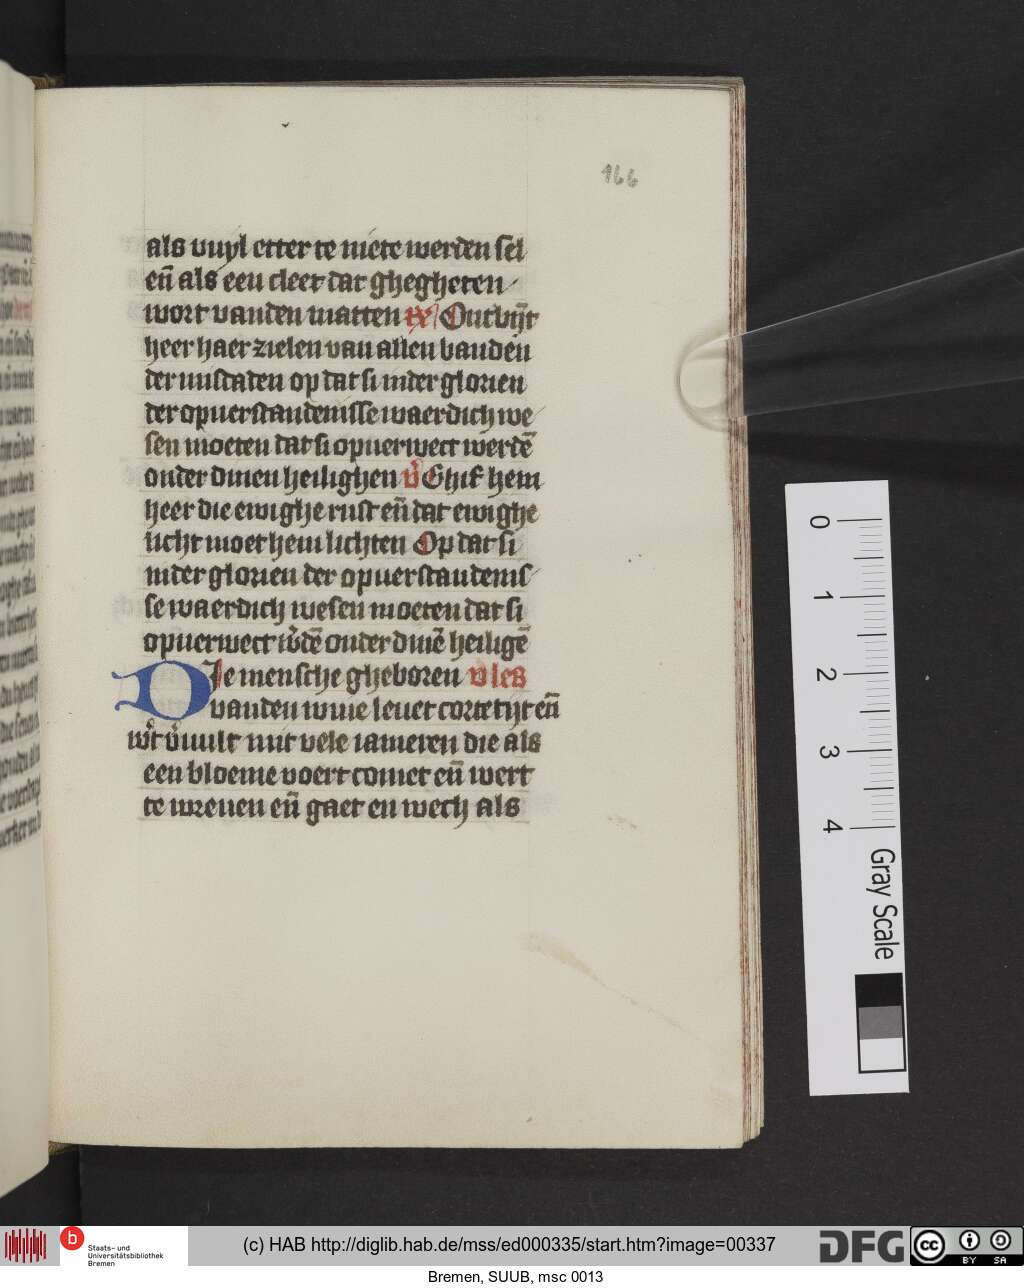 166
als vuyl etter te niete werden sel
eñ als een cleet dat ghegheten
wort vanden matten Ontbijt
heer haer zielen van allen banden
der misdaden op dat si inder glorien
der opuerstandenisse waerdich we
sen moeten dat si opuerwect werdē
onder dinen heilighen v̄ Ghif hem
heer die ewighe rust eñ dat ewighe
licht moet hem lichten Op dat si
inder glorien der opuerstandenis
se waerdich wesen moeten dat si
opuerwect w̄dē onder dinē heiligē
Die mensche gheboren vles
vanden wiue leuet corte tijt eñ
w̄t v̄uult mit vele iameren die als
een bloeme voert comet eñ wert
te wreuen eñ gaet en wech als
0
1
2
3
4
Gray Scale
b
Staats- und
Universitätsbibliothek
Bremen
(c) HAB http://diglib.hab.de/mss/ed000335/start.htm?image=00337
DFG
cc
BY SA
Bremen, SUUB, msc 0013